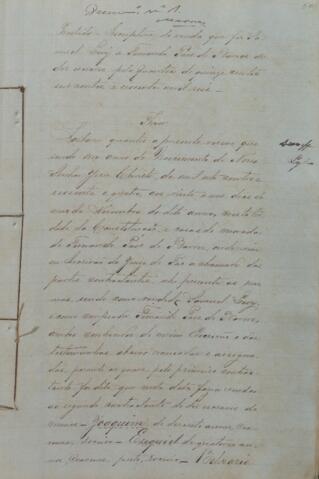 Documento nº 1.
Traslado - Escriptura de venda que faz Sa
muel Levy a Fernando Paes de Barros de
dez escravos pela quantia de quinze contos
seis centos e oitenta mil reis -
Saibão quantos o presente virem que
sendo no anno do Nascimento de Nosso
Senhor Jesus Christo, de mil oito centos e
sessenta e quatro, aos vinte e um dias do
mez de Novembro do dito anno, nesta Ci
dade da Constituição e casas de morada
de Fernando Paes de Barros, onde vim
eu Escrivão do Juizo de Paz a chamado das
partes contractantes, ahi perante as pro
prias, sendo como vendedor Samuel Levy,
e como comprador Fernando Paes de Barros,
ambos conhecidos de mim Escrivão e das
testemunhas abaixo nomeadas e assigna
das, perante as quaes, pelo primeiro contrac
tante foi dito que nesta data fazia vendas
ao segundo contractante de dez escravos de
nomes - Joaquim de dezesete annos
Ezequiel de quatorze an
nos preto, - Belisario